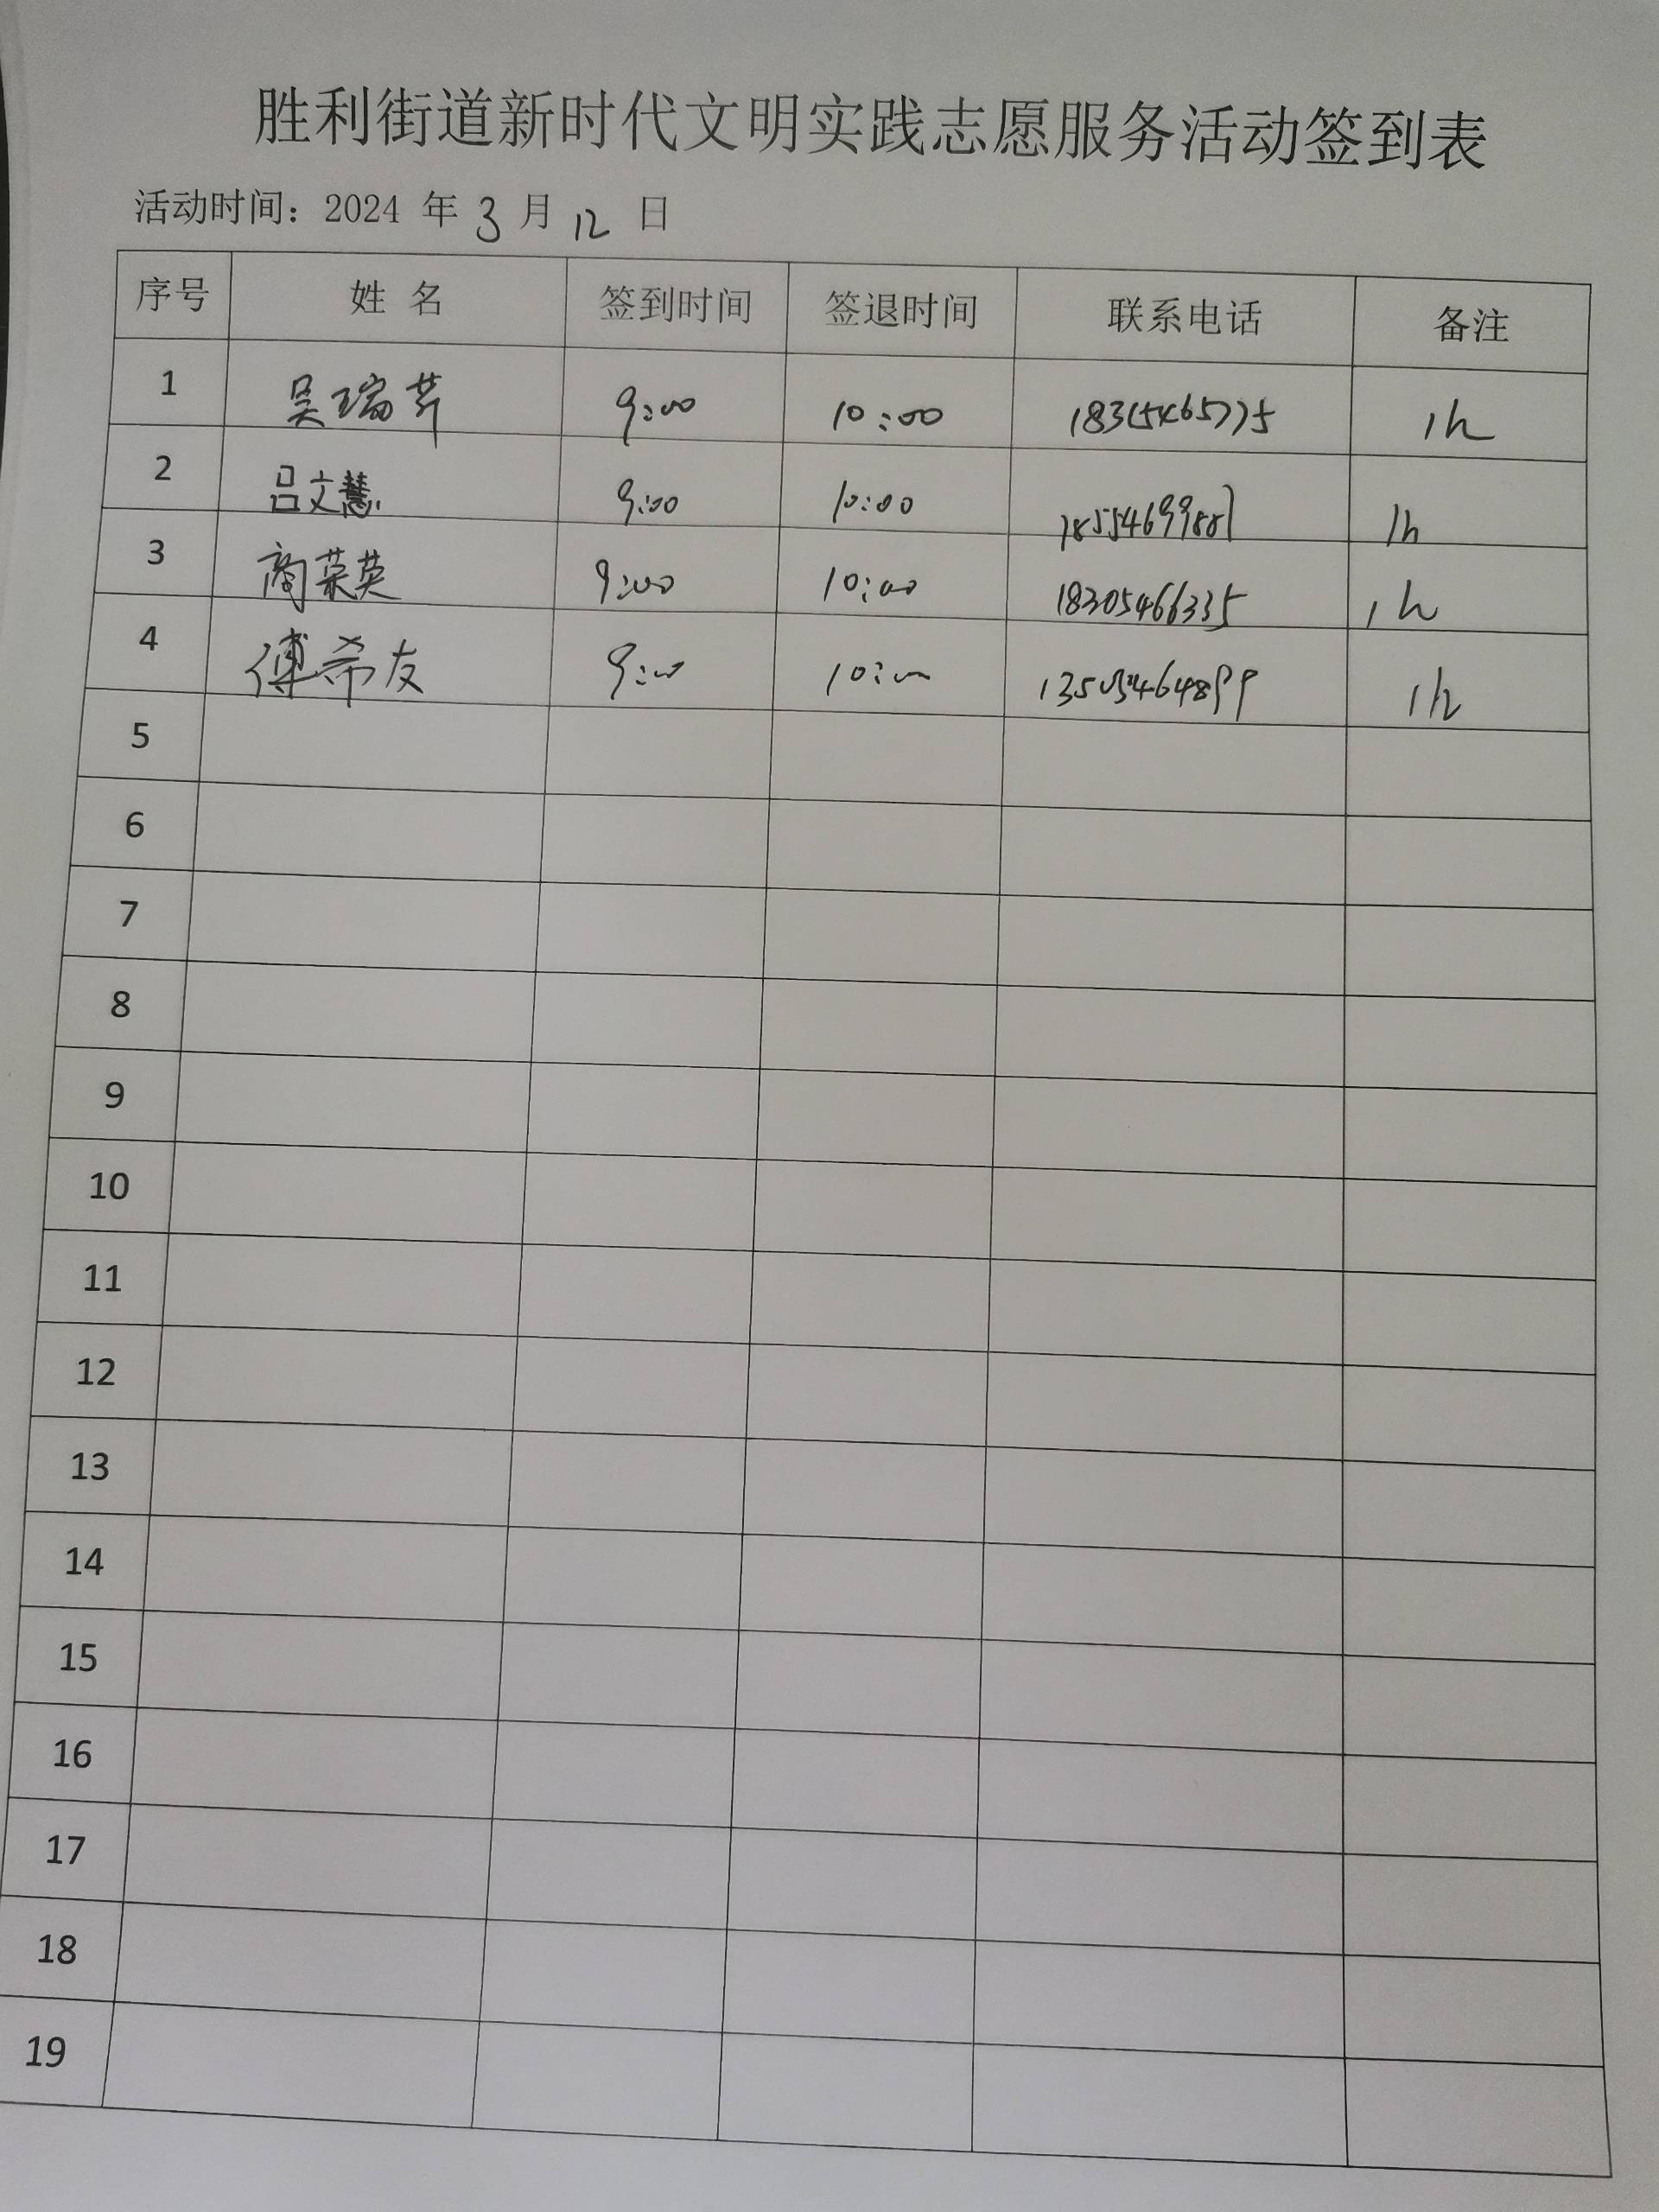 胜利街道新时代文明实践志愿服务活动签到表
活动时间：2024 年 3 月 12 日
序号 姓 名 签到时间 签退时间 联系电话 备注
1 吴瑞芹 9:00 10:00 1h
2 吕文慧 9:00 10:00 1h
3 商荣英 9:00 10:00 18305466335 1h
4 傅希友 9:00 10:00 1h
5
6
7
8
9
10
11
12
13
14
15
16
17
18
19